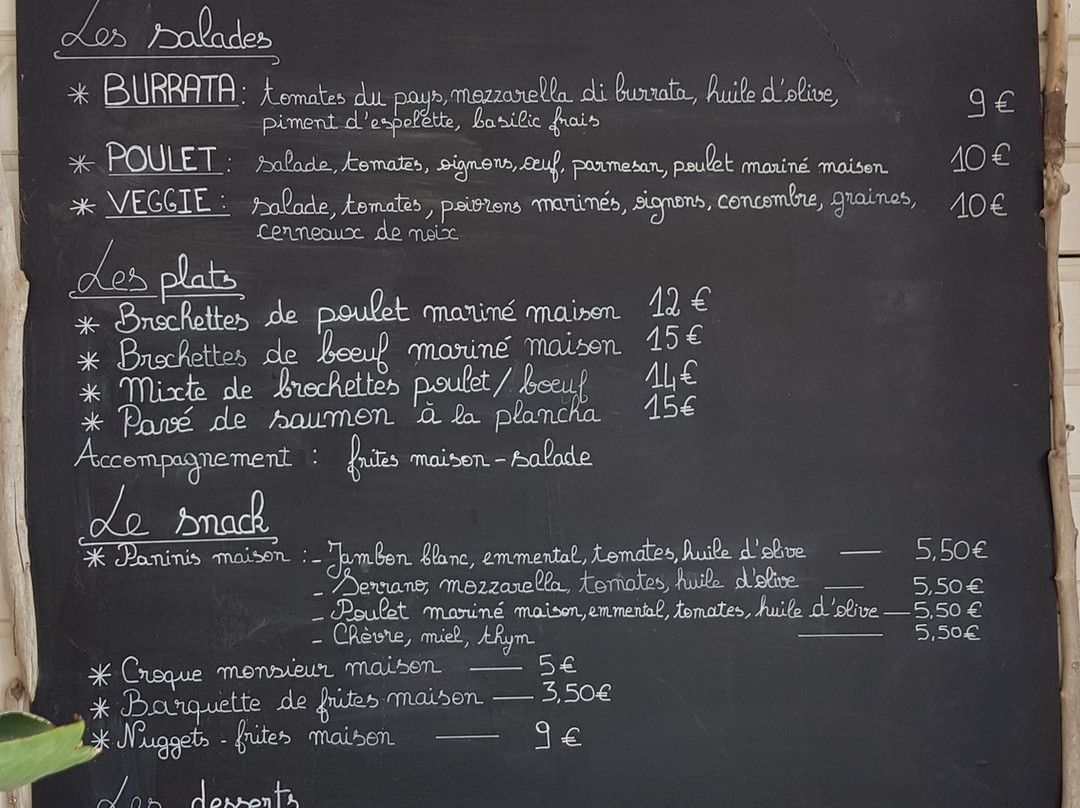 Les salades
* BURRATA : tomates du pays, mozzarella di burrata, huile d'olive, 9 €
piment d'espelette, basilic frais
* POULET : salade, tomates, oignons, œuf, parmesan, poulet mariné maison 10 €
* VEGGIE : salade, tomates, poivrons marinés, oignons, concombre, graines, 10 €
cerneaux de noix
Les plats
* Brochettes de poulet mariné maison 12 €
* Brochettes de boeuf mariné maison 15 €
* Mixte de brochettes poulet / boeuf 14 €
* Pavé de saumon à la plancha 15€
Accompagnement : frites maison - salade
Le snack
* Paninis maison : - Jambon blanc, emmental, tomates, huile d'olive — 5,50€
- Serrano, mozzarella, tomates, huile d'olive — 5,50€
- Poulet mariné maison, emmental, tomates, huile d'olive — 5,50 €
- Chèvre, miel, thym — 5,50€
* Croque monsieur maison — 5€
* Barquette de frites maison — 3,50€
* Nuggets - frites maison — 9 €
Les desserts